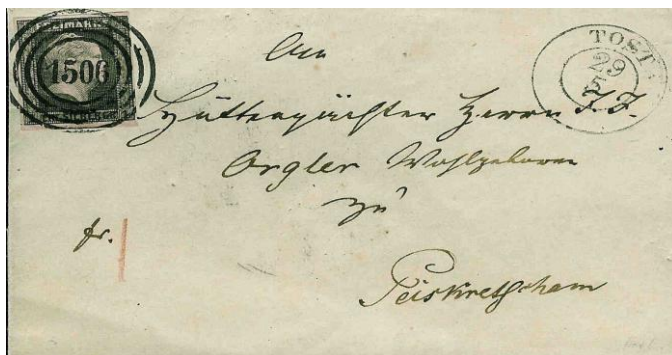 FREIMARKE
1506
TOST
29
5
An
Hüttenpächter Herrn J. J.
Orgler Wohlgeboren
zu
fr.
Peiskretscham